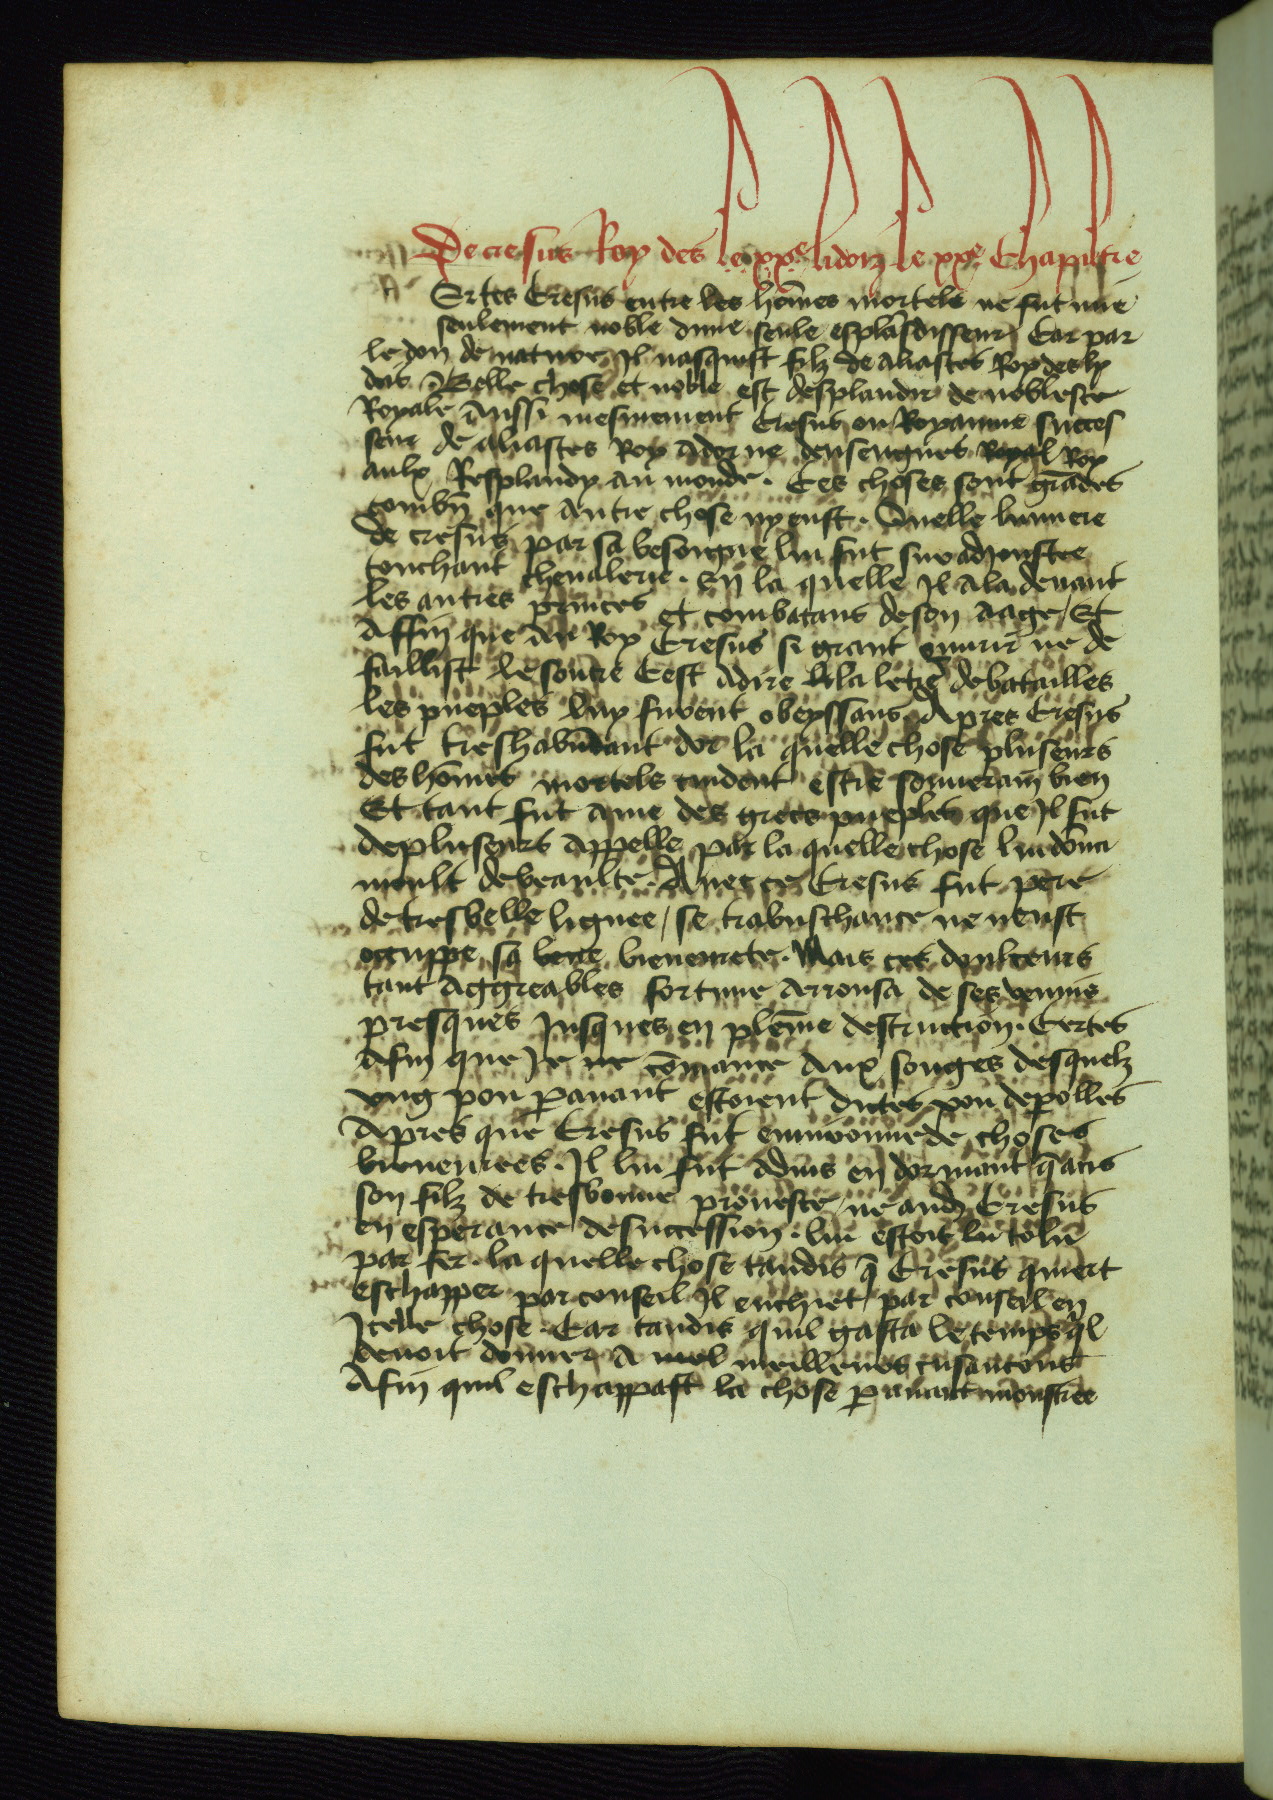 De cresus Roy des le xxe lidorz le xxe Chapitre
Ertes Cresus entre les hōmes mortels ne fut mie
seulement noble dune seule esplādisseur Car par
le don de nature Il nasquist filz de aliastes Roy des ly
das Belle chose et noble est desplandir de noblesce
Royale Aussi mesmement Cresus ou Royaume succes
seur de aliastes Roy adorne densengnes Royal Roy
aulx Resplandy au monde . Ces choses sont grādes
combn̄ que autre chose ny eust . Quelle lumiere
de cresus par sa besongne lui fut sur adjoustee
touchant cheualerie . En la quelle Il ala deuant
les autres princes et combatans de son aage / Et
Affin que au Roy Cresus si grant ne de
faillist le sourre Cest adire de batailles
les pueples luy furent obeyssans Apres Cresus
fut treshabūdant dor la quelle chose pluseurs
des hōmes mortels cuident estre souuerain bien
Et tant fut ame des grecs pueples que Il fut
de pluseurs appelle par la quelle chose lui dōna
moult de beaulte . Auec ce Cresus fut pere
de tresbelle lignee / se trabuschance ne neust
ocuppe sa bienenrete . Mais ces doulceurs
tant aggreables fortune arrousa de ses venins
presques Jusques en plēme destruction . Certes
Afin que Je ne cōmance aux songes desquelz
vng pou parauant estoient dictes pou de polles
Apres que Cresus fut enuironne de choses
bieneurees . Il lui fut aduis en dormant q̄ atis
son filz de tresbonne prouesce / ne Cresus
en esperance de succession . lui estoit tolu
par fer . la quelle chose tandis q̄ Cresus quiert
eschapper par conseil Il enchiet par conseil en
Jcelle chose . Car tandis quil gasta le temps q̄l
deuoit donner a meilleures cusancons
Afin quil eschappast la chose parauant monstree